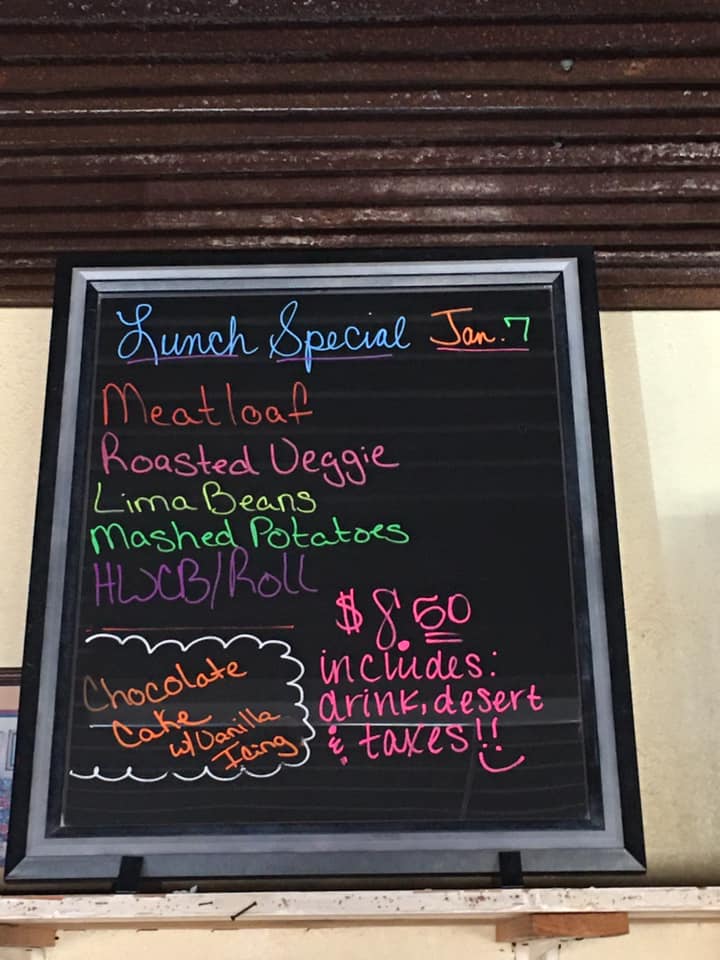 Lunch Special Jan. 7
Meatloaf
Roasted Veggie
Lima Beans
Mashed Potatoes
HWCB/Roll
$8.50
includes:
drink, desert
& taxes!!
Chocolate
Cake
w/Vanilla
Icing